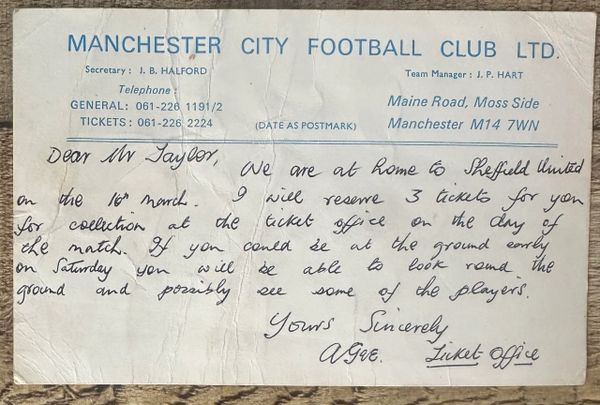 MANCHESTER CITY FOOTBALL CLUB LTD.
Secretary: J. B. HALFORD
Team Manager: J. P. HART
Telephone:
GENERAL: 061-226 1191/2
Maine Road, Moss Side
TICKETS: 061-226 2224
(DATE AS POSTMARK)
Manchester M14 7WN
Dear Mr Taylor,
We are at home to Sheffield United
on the 16th march. I will reserve 3 tickets for you
for collection at the ticket office on the day of
the match. If you could be at the ground early
on Saturday you will be able to look round the
ground and possibly see some of the players.
Yours Sincerely
Ticket Office